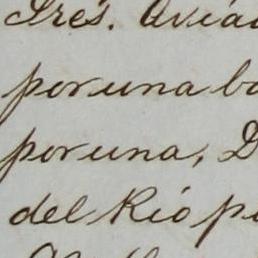 Tres. Avia
por una ba
por una, D
del Rio p